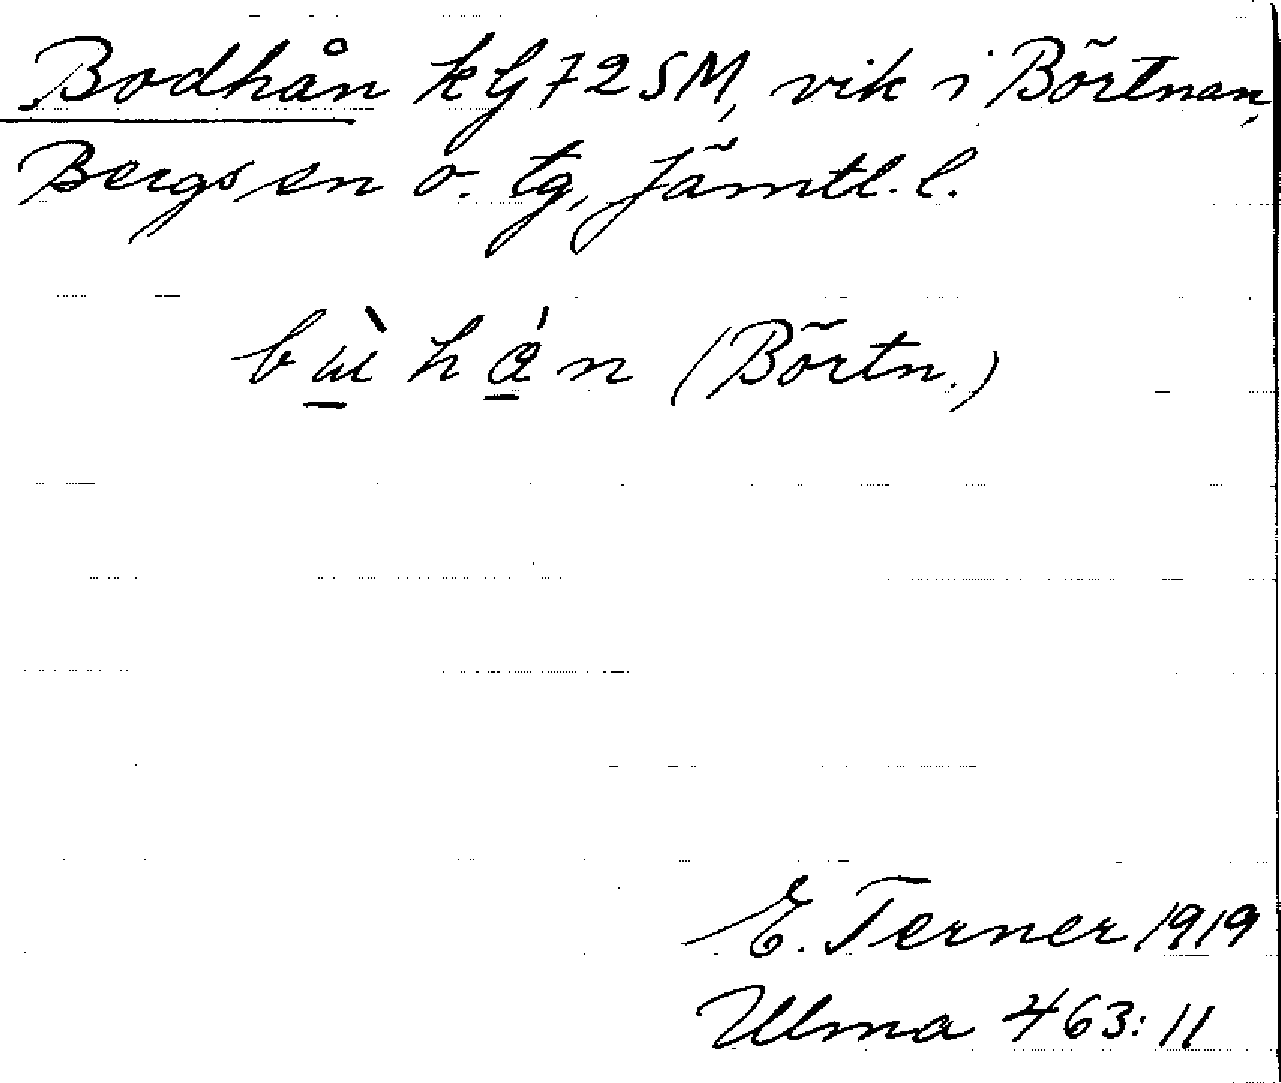 Bodhån kG 72 SM, vik i Börtnan,
Bergs sn o. tg, Jämtl. l.
bɯ̀hån (Börtn.)
E. Terner 1919
Ulma 463:11